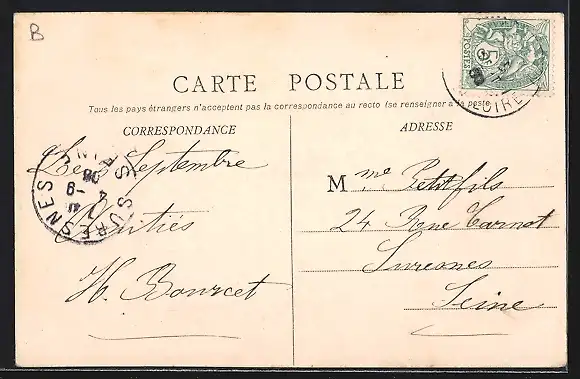 B
POSTES
5
LOIRE
CARTE POSTALE
Tous les pays étrangers n'acceptent pas la correspondance au recto (se renseigner à la poste
CORRESPONDANCE
ADRESSE
Septembre
Amitiés
H. Bourcet
SURESNES
SEINE
Mme Petitfils
24 Rue Carnot
Suresnes
Seine